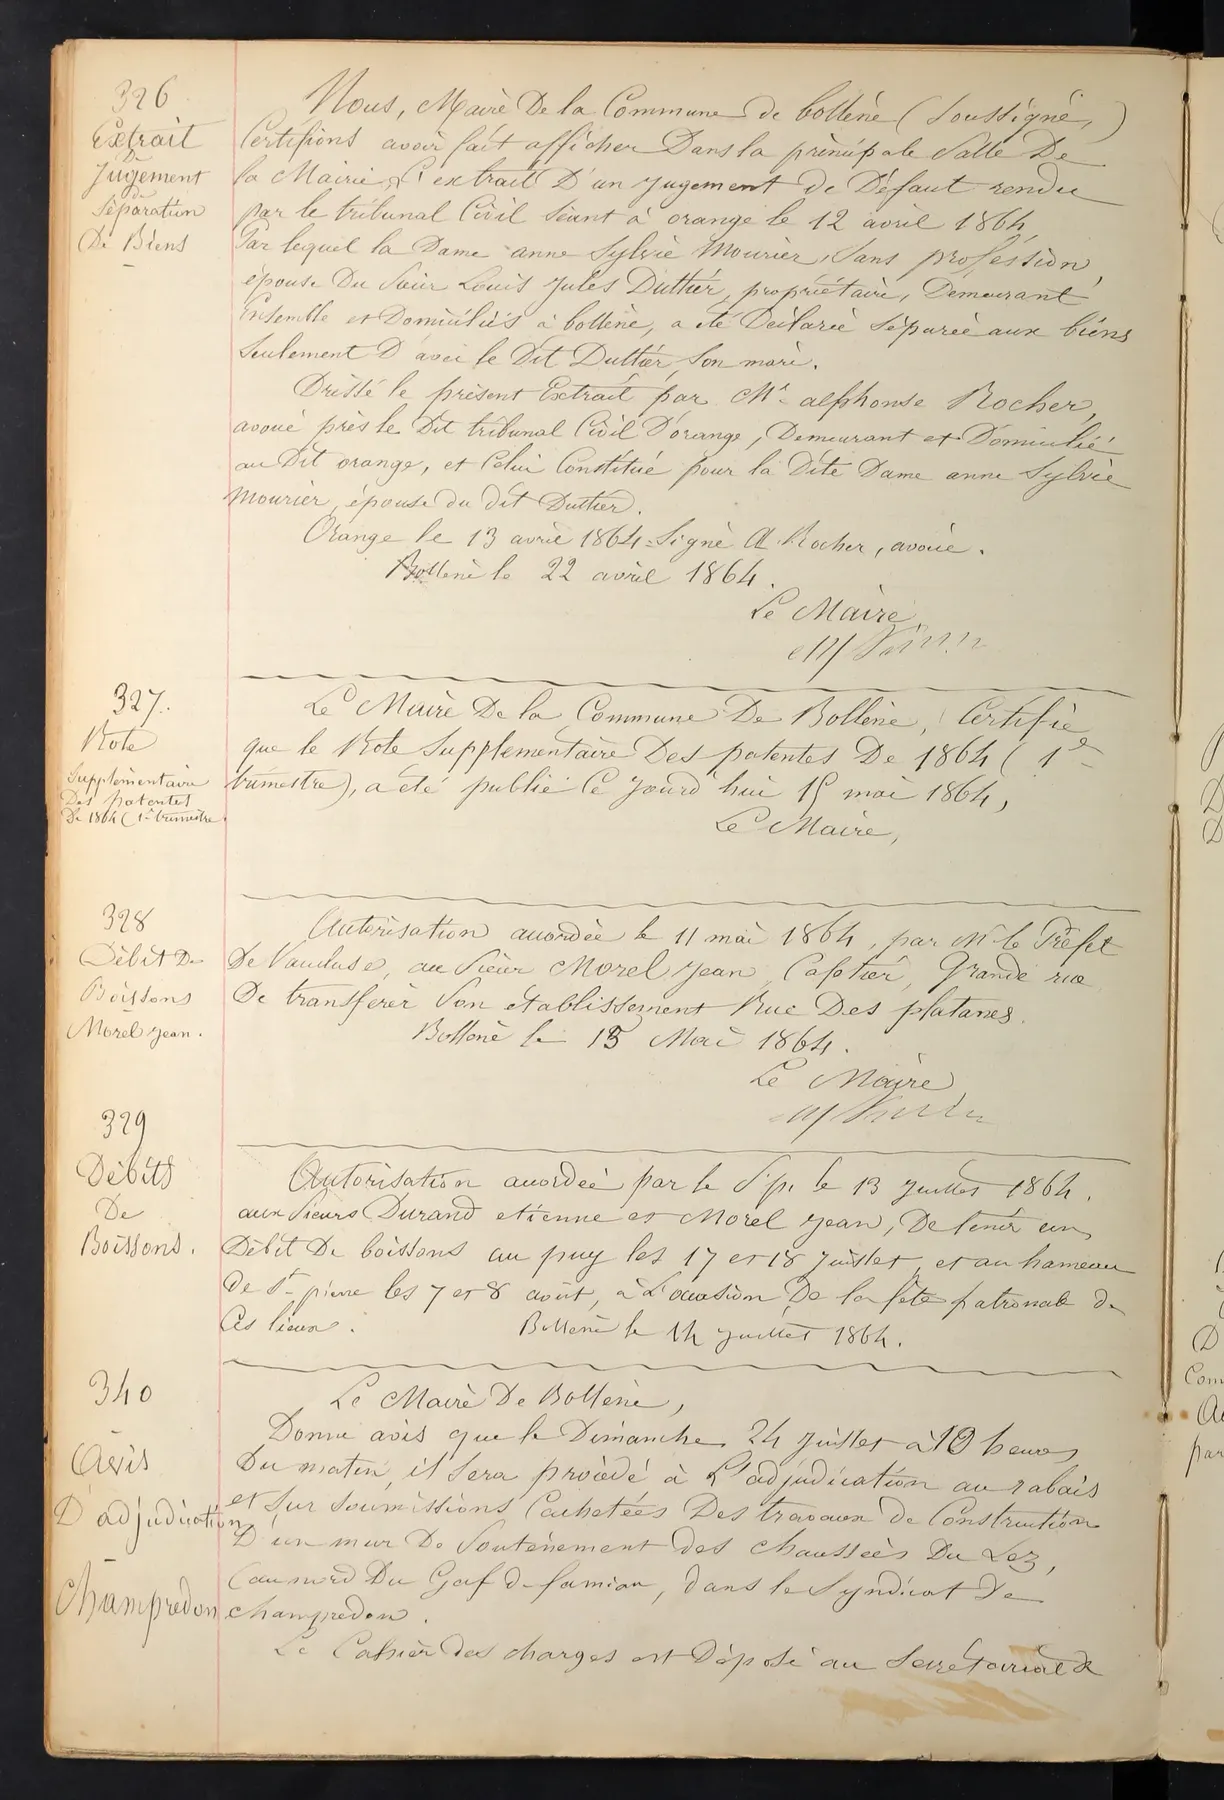 326
Extrait
Du
Jugement
de
Séparation
De Biens
Nous, Maire De la Commune de bollène (Soussigné,)
Certifions avoir fait afficher Dans la principale Salle De
la Mairie, L'extrait D'un jugement de Défaut rendu
par le tribunal Civil Séant à orange le 12 avril 1864
Par lequel la Dame anne Sylvie Mourier, Sans profession,
épouse Du Sieur Louis Jules Duttier, propriétaire, Demeurant
Ensemble et Domiciliés à bollène, a été Déclarée Séparée aux biens
Seulement D'avec le Dit Duttier, Son mari.
Dressé le présent Extrait par Mr alphonse Rocher,
avoué près le Dit tribunal Civil D'orange, Demeurant et Domicilié
au Dit orange, et Celui Constitué pour la Dite Dame anne Sylvie
Mourier, épouse du dit Duttier.
Orange le 13 avril 1864 = Signé A Rocher, avoué.
Bollène le 22 avril 1864.
Le Maire
327.
Rôle
Supplémentaire
Des patentes
De 1864 (1er trimestre
Le Maire De la Commune De Bollène, Certifie
que le Rôle Supplémentaire Des patentes De 1864 (1er
trimestre), a été publié Ce Jourd'hui 15 mai 1864,
Le Maire,
328
Débit De
Boissons
Morel Jean.
Autorisation accordée le 11 mai 1864, par Mr le Préfet
De Vaucluse, au Sieur Morel Jean, Cafetier, Grande rue
De transférer Son établissement Rue Des platanes.
Bollène le 15 Mai 1864.
Le Maire
329
Débits
De
Boissons.
Autorisation accordée par le S.p. le 13 Juillet 1864.
aux Sieurs Durand etienne et Morel Jean, De tenir un
Débit De boissons au puy les 17 et 18 Juillet, et au hameau
de St pierre les 7 et 8 août, à L'occasion De la fête patronale de
Ces lieux. Bollène le 14 Juillet 1864.
340
Avis
D'adjudication
Champredon
Le Maire De Bollène,
Donne avis que le Dimanche 24 Juillet à 10 heures
Du matin, il Sera procédé à L'adjudication au rabais
et Sur Soumissions Cachetées Des travaux de Construction
D'un mur De Soutènement des Chaussées Du Lez,
(au nord Du Gaf de , dans le Syndicat De
Champredon.
Le Cahier des charges est Déposé au Secrétariat de